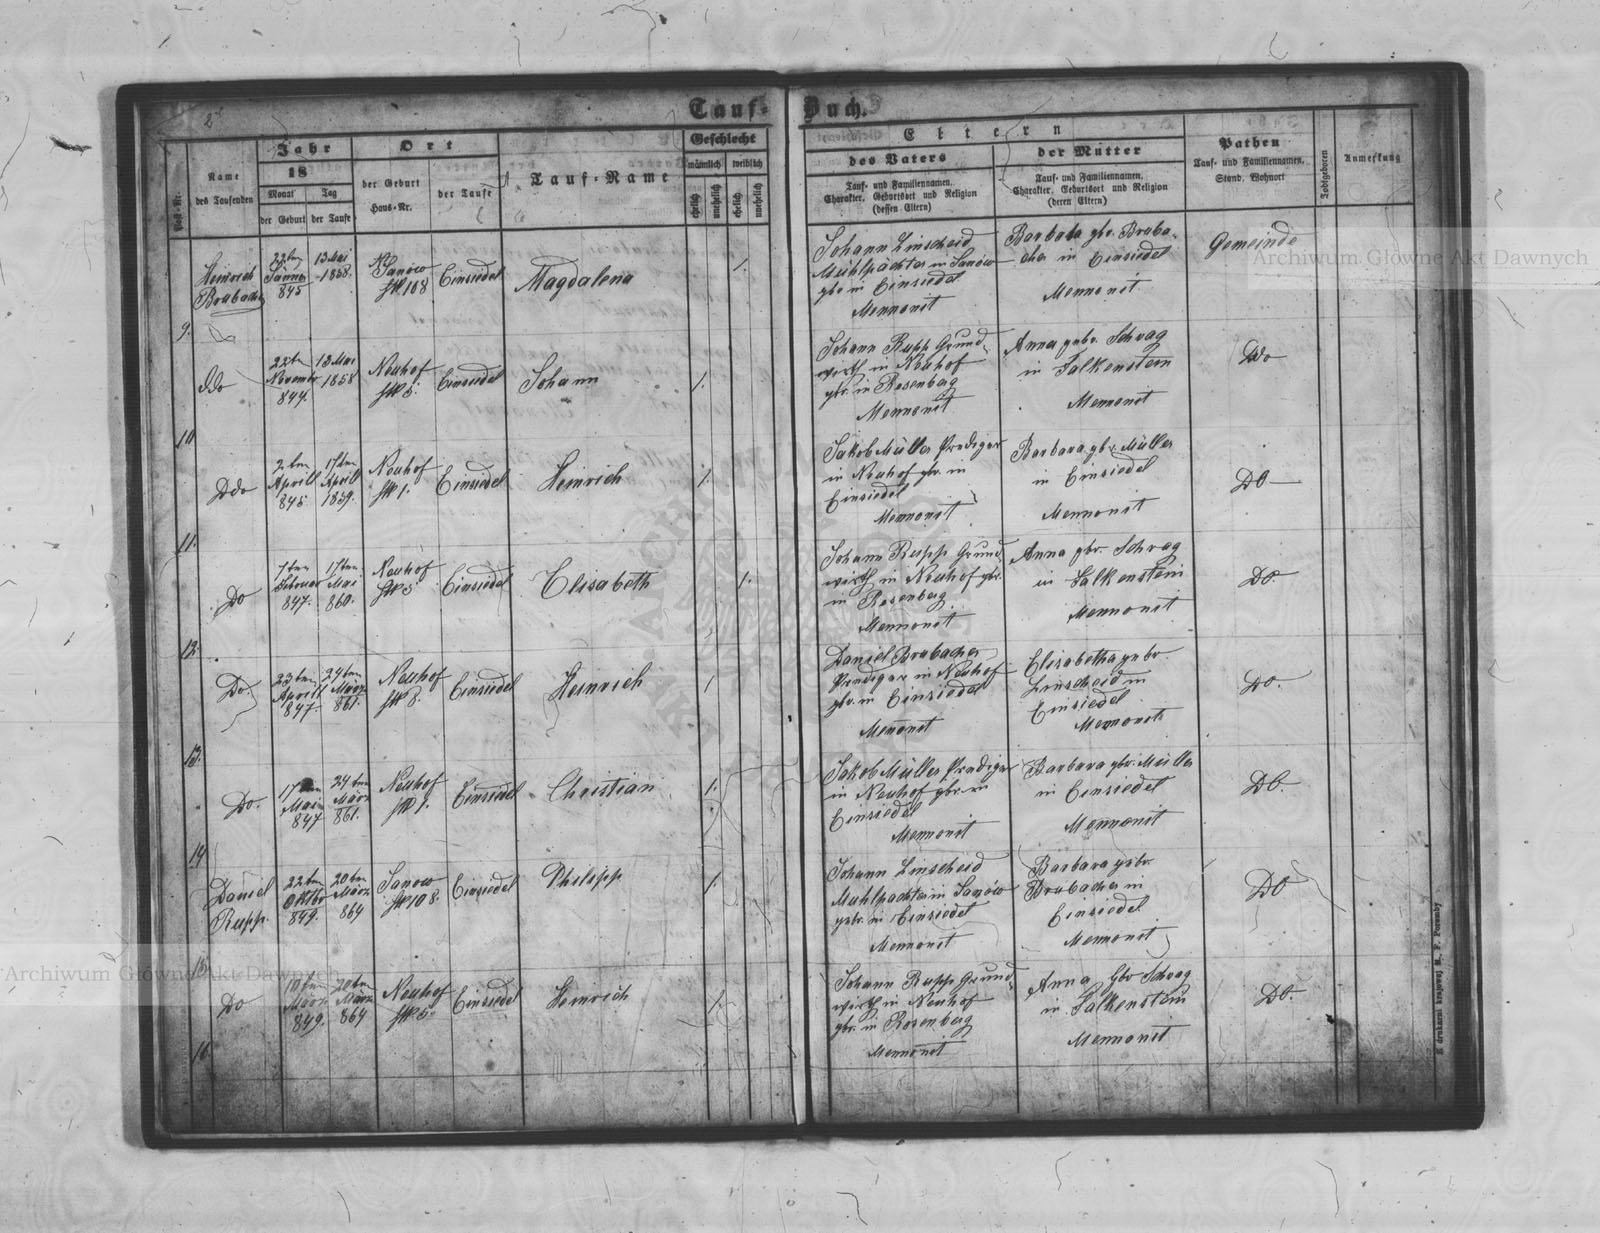 2
Tauf-Buch.
Post-Nr.
Name
des Taufenden
Jahr
18
Monat
der Geburt
Tag
der Taufe
Ort
der Geburt
Haus-Nr.
der Taufe
Tauf-Name
Geschlecht
männlich
weiblich
ehelich
unehelich
ehelich
unehelich
Eltern
des Vaters
Tauf- und Familiennamen,
Charakter, Geburtsort und Religion
(dessen Eltern)
der Mutter
Tauf- und Familiennamen,
Charakter, Geburtsort und Religion
(deren Eltern)
Pathen
Tauf- und Familiennamen,
Stand, Wohnort
Todtgeboren
Anmerkung
Heinrich
Brubacher
22ten
Jänner
845
13 Mai
1858.
Sanow
№ 108
Einsiedel
Magdalena
1.
Johann Linscheid
Mühlpächter in Sanów
gbr in Einsiedel
Mennonit
Barbara gbr. Bruba-
cher in Einsiedel
Mennonit
Gemeinde
9.
Ddo
22ten
Novembr
844.
13 Mai
1858
Neuhof
№ 5.
Einsiedel
Johann
1.
Johann Rupp Grund-
wirth in Neuhof
gbr. in Rosenberg
Mennonit
Anna gebr. Schrag
in Falkenstein
Mennonit
Ddo
10
Ddo
2ten
Aprill
845
17ten
Aprill
1859.
Neuhof
№ 1.
Einsiedel
Heinrich
1.
Jakob Müller Prediger
in Neuhof gbr. in
Einsiedel
Mennonit
Barbara gbr. Müller
in Einsiedel
Mennonit
DO—
11.
Do
7ten
Februar
847.
17ten
Mai
860.
Neuhof
№ 5
Einsiedel
Elisabeth
1.
Johann Rupp Grund
wirth in Neuhof gbr.
in Rosenberg
Mennonit
Anna gbr. Schrag
in Falkenstein
Mennonit
Do
12.
Do
23ten
Aprill
847.
24ten
März
861.
Neuhof
№ 8.
Einsiedel
Heinrich
1
Daniel Brubacher
Prediger in Neuhof
gbr. in Einsiedel
Mennonit
Elisabetha gebr.
Linscheid in
Einsiedel
Mennonit
Do.
13.
Do.
17ten
Mai
847
24ten
März
861.
Neuhof
№ 1.
Einsiedel
Christian
1.
Jakob Müller Prediger
in Neuhof gbr. in
Einsiedel
Mennonit
Barbara gbr. Müller
in Einsiedel
Mennonit
DO.
14
Daniel
Rupp.
22ten
Oktbr
849.
20ten
März
864
Sanow
№ 108.
Einsiedel
Philipp
1.
Johann Linscheid
Muhlpachter in Sanów
gebr. in Einsiedel
Mennonit
Barbara gebr.
Brubacher in
Einsiedel.
Mennonit
DO
15.
Do
10ten
März
849.
20ten
März
864
Neuhof
№ 5.
Einsiedel
Heinrich
1.
Johann Rupp Grund-
wirth in Neuhof
gbr. in Rosenberg
Mennonit
Anna Gbr Schrag
in Falkenstein
Mennonit
DO.
16.
Z drukarni krajowej H. F. Poremby
Archiwum Główne Akt Dawnych
Archiwum Główne Akt Dawnych